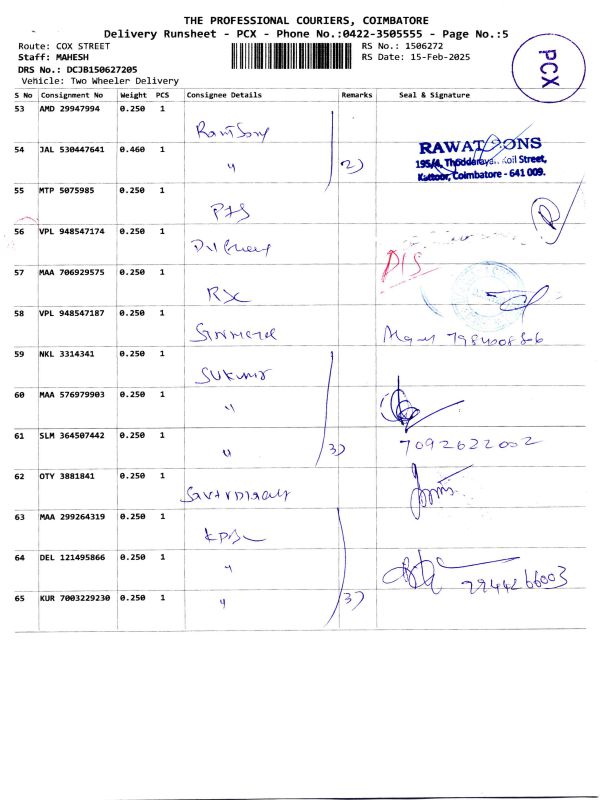 THE PROFESSIONAL COURIERS, COIMBATORE
Delivery Runsheet - PCX - Phone No.:0422-3505555 - Page No.:5
Route: COX STREET
RS No.: 1506272
Staff: MAHESH
RS Date: 15-Feb-2025
DRS No.: DCJB150627205
Vehicle: Two Wheeler Delivery
PCX
S No Consignment No Weight PCS Consignee Details Remarks Seal & Signature
53 AMD 29947994 0.250 1
54 JAL 530447641 0.460 1 " 2)
RAWAT SONS
195/4, Thoddarayan Koil Street,
Kattoor, Coimbatore - 641 009.
55 MTP 5075985 0.250 1
56 VPL 948547174 0.250 1
57 MAA 706929575 0.250 1 RX
58 VPL 948547187 0.250 1
59 NKL 3314341 0.250 1
60 MAA 576979903 0.250 1 "
61 SLM 364507442 0.250 1 " 3) 7092622002
62 OTY 3881841 0.250 1
63 MAA 299264319 0.250 1
64 DEL 121495866 0.250 1 "
65 KUR 7003229230 0.250 1 " 3)